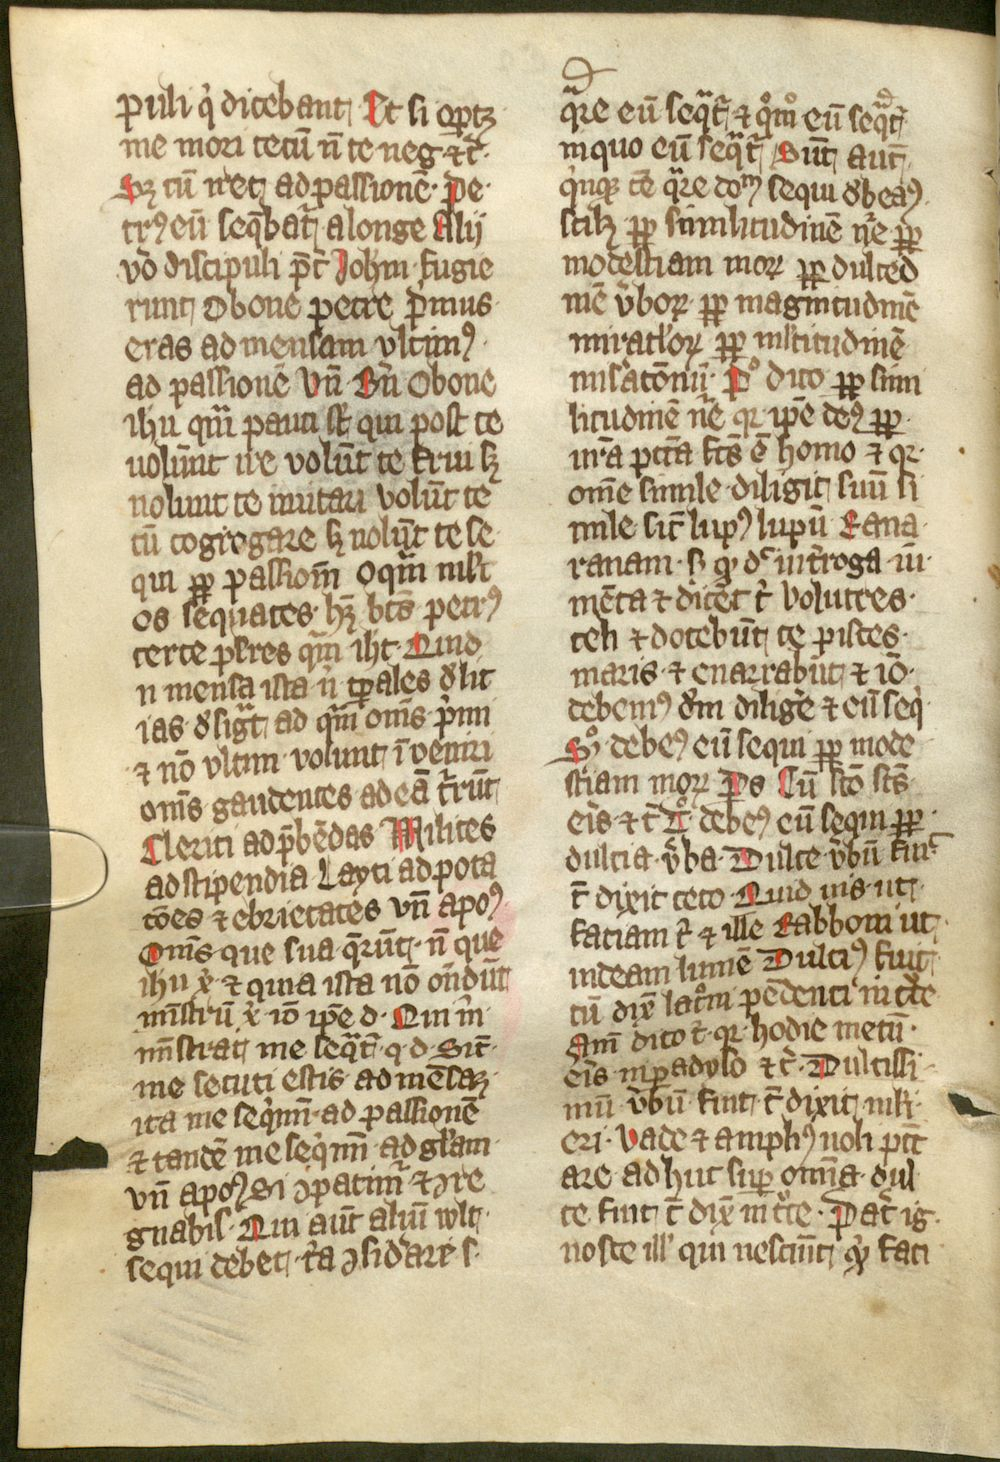 puli qͥ dicebant Et si oportꝫ
me mori tecū n̄ te neg ⁊ c̄.
Sꝫ cū uēt ad passionē. Pe
trꝰ eū seq̄bat᷑ a longe Alij
vͦ discipuli p̄t̄ Johm̄ fugie
runt O bone petre pͥmus
eras ad mensam vltimꝰ
ad passionē Vn̄ Bn̄ O bone
ihu qm̄ pauci st̄ qui post te
uolūnt ire volūt te frui sꝫ
nolunt te imitari volūt te
cū cogregare sꝫ nolūt te se
qui ꝓpꝑ passiōm O qm̄ mlt
os seq̄uaces. hꝫ bt̄s petrꝰ
certe plres qm̄ ihc̄. Quid
n mensa ista n̄ tꝑales dl̄it
ias dsigt̄ ad qm̄ om̄s pͥmi
⁊ nō vltimi volunt īveniri
om̄s gaudentes ad eā c̄rūt
Clerici ad p̄bēdas Milites
ad stipendia Layci ad pota
cōes ⁊ ebrietates vn̄ apoꝰ
Om̄s que sua q̄rūt. n̄ que
ihu xͥ ⁊ quia ista nō ondūt
mīstrū xͥ iō ip̄e d. Qui m̄
mīstrat me seqt᷑. q. d. Sic̄
me secuti estis ad mēsaꝫ
ita me seqͥmī. ad passionē
⁊ tandē me seqͥmī ad glam
vn̄ apoꝰ Si ꝯpatim᷑ ⁊ ꝯre
gnabiꝰ. Qui aūt aliū vult
sequi debet. tͥa ꝯsidare s.
qͣre eū seqͣt᷑. ⁊ qͦmͦ eū seqͣt᷑
in quo eū seqͣt᷑ Sūt aūt
qͥnqꝫ cē qͣre don̄ sequi dbeaꝰ
scilꝫ ꝓpꝑ similitudinē nr̄e ꝓpꝑ
modestiam moꝝ ꝓpꝑ dulced
inē v̄boꝝ ꝓpꝑ magnitudinē
miraclͦoꝝ ꝓpꝑ mltitudinē
mis̄atōnū. Pͦ dico ꝓpꝑ simi
litudinē nr̄e qꝛ ip̄e deꝰ ꝓpꝑ.
nr̄a pctā fcs̄ ē homo ⁊ qꝛ.
om̄e simile diligit suū si
mile sic̄ lupꝰ lupū Rana
ranam. sͥ qͦ dͬ int̄roga iu
mēta ⁊ dicēt tͥ volucres.
celi ⁊ docebūt te pisces.
maris ⁊ enarrabūt ⁊ iō.
debemꝰ dm̄ diligͤe ⁊ eū seqͥ
Sͦ debeꝰ eū sequi ꝓpꝑ mode
stiam moꝝ Ps Cū scō scs̄
eis ⁊ c̄ Tͦ. debeꝰ eū sequi ꝓpꝑ
dulcia v̄ba. Dulce v̄bū fuit
c̄ dixit ceco. Quid uis ut
faciam tͥ ⁊ ille Rabboni ut
uideam lumē Dulciꝰ fuit
cū dix̄ latͦni pēdenti in cͤce
Am̄ dico tͥ. qꝛ hodie mecū.
eis in padyso ⁊ c̄. Dulcissi
mū v̄bū fuit. c̄ dixit mli
eri. Vade ⁊ ampliꝰ noli pc̄c
are ad huc suꝑ om̄ia dul
ce fuit c̄ dix̄ in cͤce. Pat᷑ ig
nosce ill' qui nesciūt qͥd faci